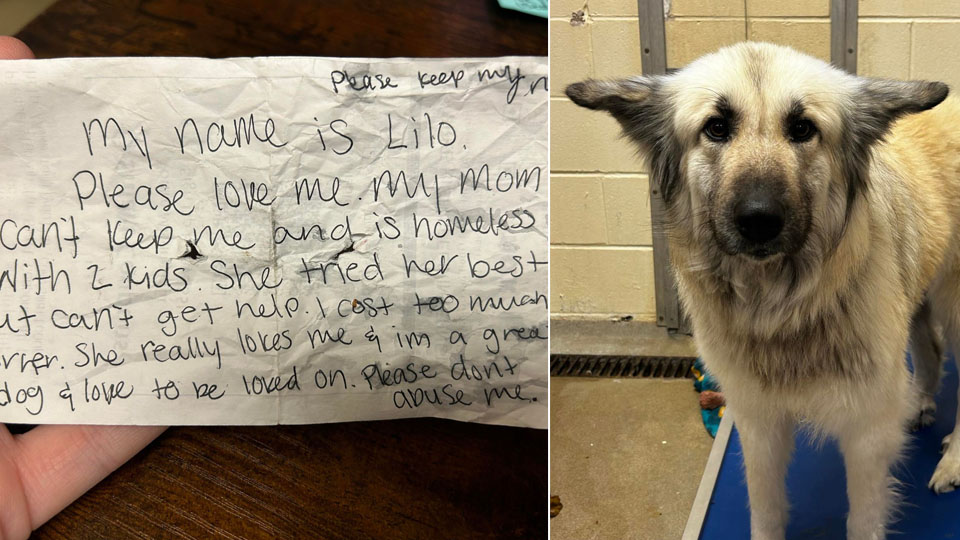 Please keep my n
My name is Lilo.
Please love me. My Mom
can't keep me and is homeless
With 2 kids. She tried her best
ut can't get help. I cost too much
orrer. She really loves me & im a grea
dog & love to be loved on. Please don't
abuse me.